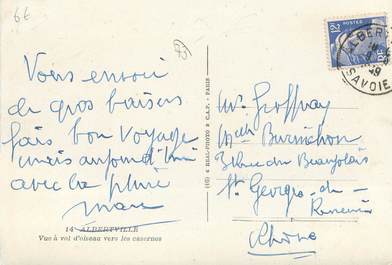 66
Vous envoi
de gros baisers
fais bon voyage
mais aujourd'hui
avec la pluie
14 ALBERTVILLE
Vue à vol d'oiseau vers les casernes
REAL-PHOTO C.A.P. - PARIS
POSTES
ALBER
SAVOIE
rue du Beaujolais
St Georges-de-
Reneins
Rhône